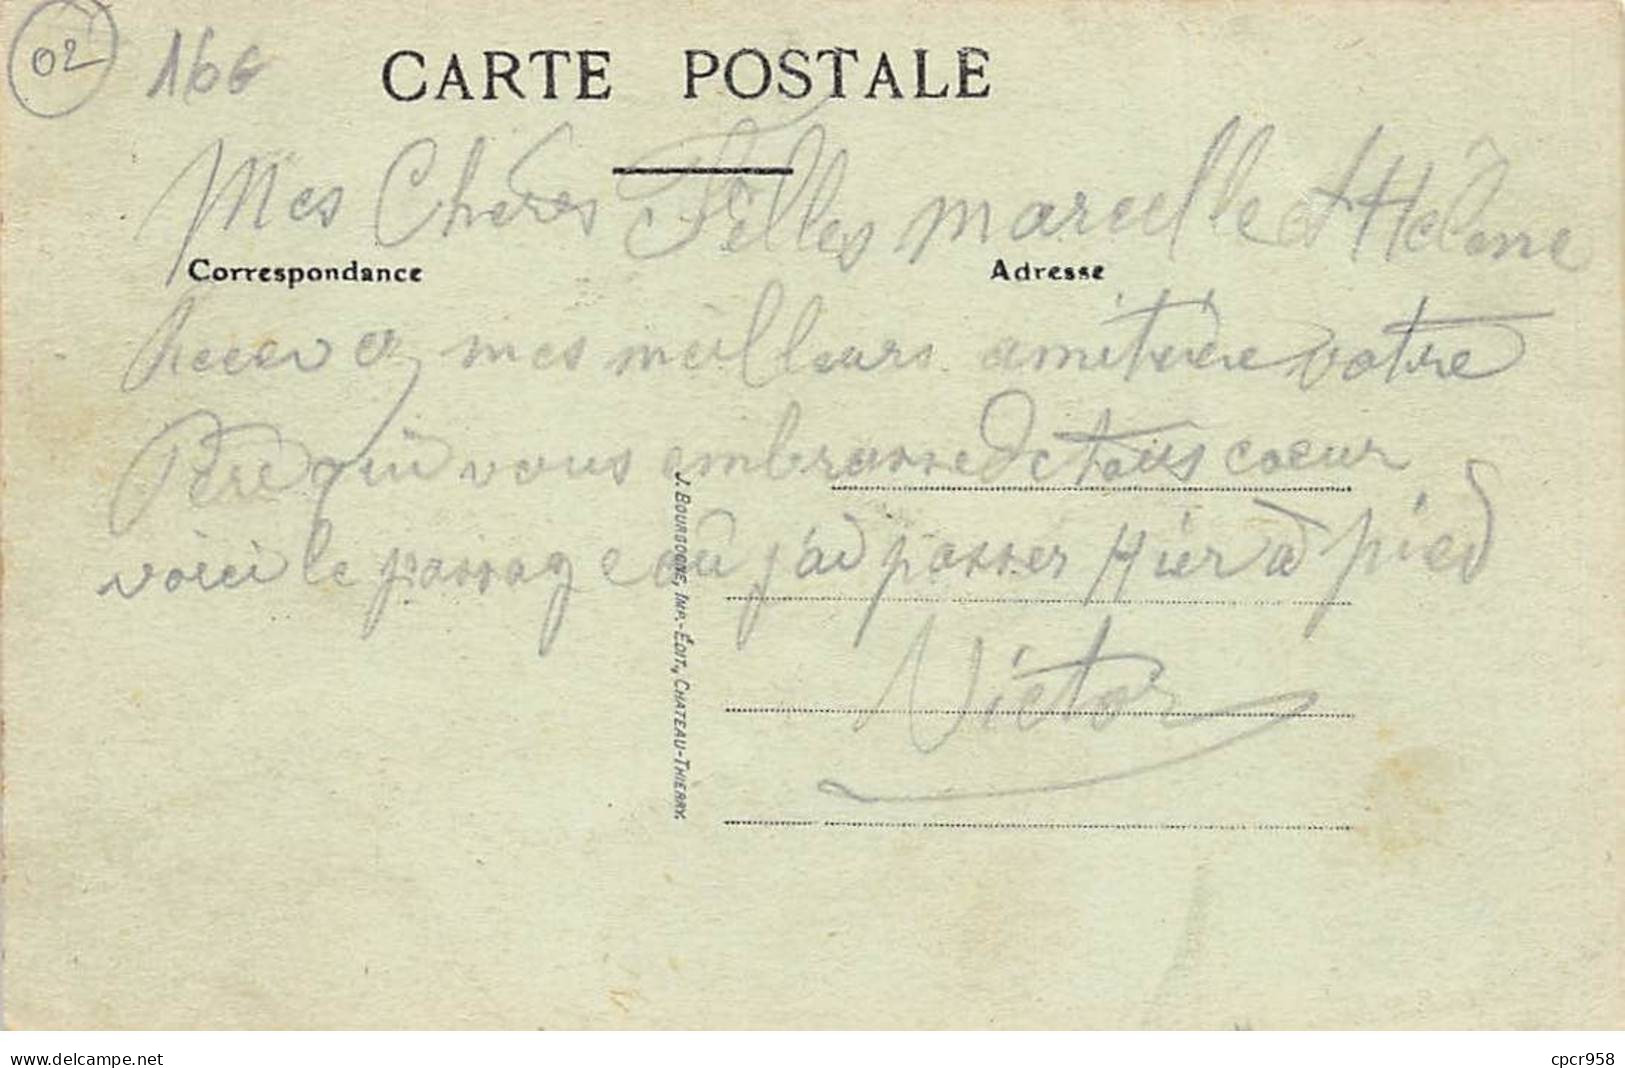 02
16€
CARTE POSTALE
Mes Chères Filles Marcelle et Hélène
Correspondance
Adresse
Recevez mes meilleurs amitière votre
Père qui vous embrasse de tous coeur
voici le passage où j'ai passer Hier à pied
Victor
J. BOURGOGNE, IMP.-ÉDIT., CHATEAU-THIERRY.
www.delcampe.net
cpcr958